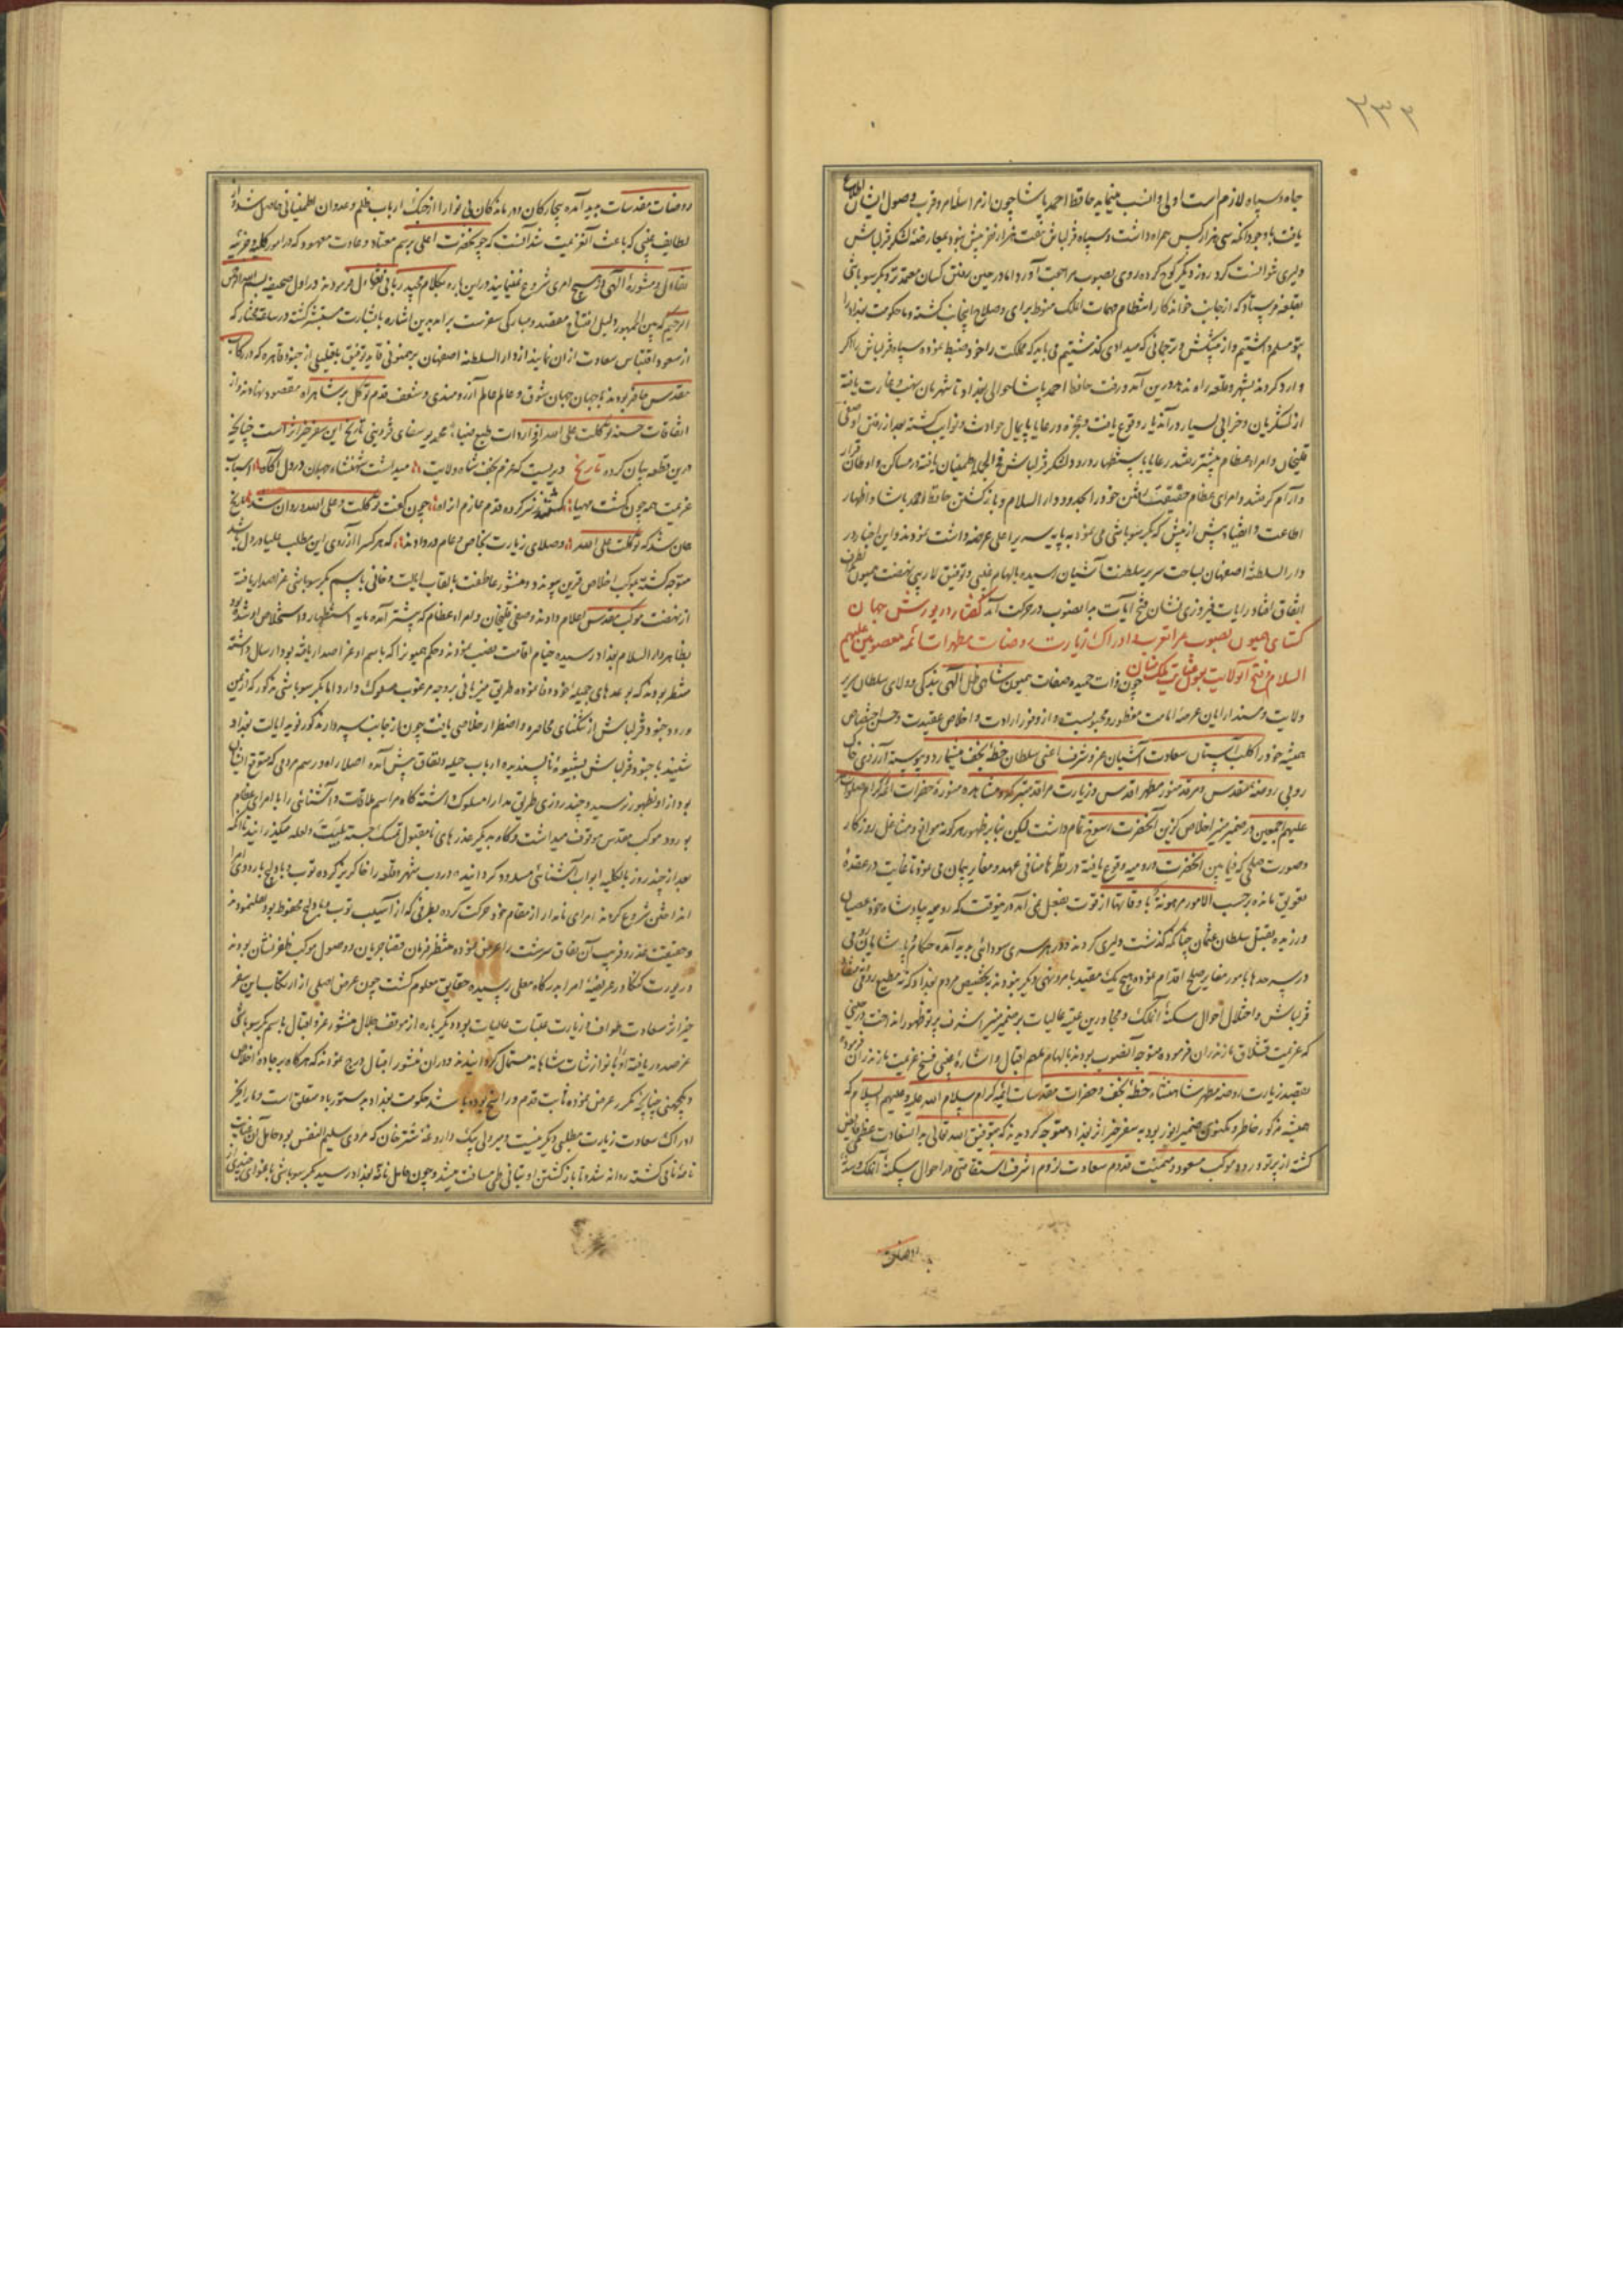 ۲۳۳
جاه و سپاه لازم است اولی و انسب مینماید حافظ احمد پاشا چون از مراسله امرا و قرب وصول ایشان اطلاع
یافت با وجود آنکه سی هزار کس همراه داشت و سپاه قزلباش هفت هزار نفر بیش نبود بمعارضه لشکر قزلباش
دلیری نتوانست کرد روز دیگر کوچ کرده روی بصوب مراجعت آورد اما در حین رفتن کسان معتمد نزد بکر سوباشی
بقلعه فرستاد که از جانب خواندکار انتظام مهمات الملک منوط برای و صلاح اینجانب گشته و ما حکومت بغداد را
بتو مسلم داشتیم و از پیشکش و ترجمانی که میدادی گذشتیم می باید که مملکت را خود ضبط نموده سپاه قزلباش را اگر
وارد گردند بشهر و قلعه راه ندهد و درین آمد و رفت حافظ احمد پاشا حوالی بغداد تا شهربان نهب و غارت یافته
از لشکریان و خرابی بسیار در آن دیار وقوع یافت و عجزه و رعایا پایمال حوادث و نوایب گشته بعد از رفتن او صفی
قلیخان و امراء عظام پیشتر رفتند رعایا باستظهار ورود لشکر قزلباش فی الجمله اطمینان یافته در مساکن و اوطان قرار
و آرام گرفتند و امرای عظام حقیقت رفتن خود را بحدود دار السلام و باز گشتن حافظ احمد پاشا و اظهار
اطاعت و انقیاد بیش از پیش که بکر سوباشی می نمود به پایه سریر اعلی عرضه داشت نمودند و این اخبار در
دار السلطنه اصفهان بساحت سریر سلطنت آشیان رسیده بالهام غیبی و توفیق لاریبی نهضت همیون بطرف
اتفاق افتاد رایات فیروزی نشان فتح آیات بدانصوب در حرکت آمد گفتار در یورش جهان
گشای همیون بصوب عراق عرب و ادراک زیارت روضات مطهرات ائمه معصومین علیهم
السلام و فتح آنولایت بعون عنایت ملک منان چون ذات حمیده صفات همیون شاهی ظل الهی ببندگی و ولای سلطان سریر
ولایت و مسند آرای عرصه امامت مفطور و مجبولست و از وفور ارادت و اخلاص عقیدت و حسن اختصاص
همیشه خود را کلب آستان سعادت آشیان عز و شرف اعنی سلطان خطه نجف میشمارد و پیوسته آرزوی خاک
روبی روضه مقدس و مرقد منور مطهر اقدس و زیارت مراقد متبرکه و مشاهد منوره حضرات ائمه کرام صلوات الله
علیهم اجمعین در ضمیر منیر اخلاص گزین آنحضرت رسوخ تمام داشت لیکن بنا بر ظهور هرگونه موانع و مشاغل روزگار
و صورت صلحی که فیما بین آنحضرت و رومیه وقوع یافته در نظرها منافی عهد و مغایر پیمان می نمود تا غایت در عقده
تعویق مانده برحسب الامور مرهونة باوقاتها از قوت بفعل نمی آمد درینوقت که رومیه بپادشاه خود عصیان
ورزیده بقتل سلطان عثمان چنانکه گذشت دلیری کردند و در هر سری سودائی پدید آمده حکام و پاشایان رومی
در سرحدها بامور مغایر صلح اقدام نموده هیچ یک مقید بامر و نهی دیگر نبودند بتخصیص مردم بغداد که نه مطیع رومی نه منقاد
قزلباش و اختلال احوال سکنه آنملک و مجاورین عتبه عالیات بر ضمیر منیر اشرف پرتو ظهور انداخت در حینی
که عزیمت قشلاق مازندران فرموده متوجه آنصوب بودند بالهام ملهم اقبال و اشاره غیبی فسخ عزیمت مازندران فرموده
بقصد زیارت روضه مطهر شاهنشاه خطه نجف و حضرات مقدسات ائمه کرام سلام الله علیه و علیهم السلام که
همیشه مذکور خاطر و مکنون ضمیر انور بود به سفر خیر اثر بغداد متوجه گردیدند که بتوفیق الله تعالی بدانسعادت عظمی فایض
گشته از پرتو ورود موکب مسعود و میمنت قدوم سعادت لزوم اشرف استقامتی در احوال سکنه آنملک و سدنه
روضات
روضات مقدسات پدید آمده بیچارگان و درماندگان بی نوا را از چنگ ارباب ظلم و عدوان اطمینانی حاصل شود از
لطایف غیبی که باعث آنعزیمت شد آنست که چون حضرت اعلی برسم معتاد و عادت معهود که در امور کلی و جزئیه
بی تفاؤل و مشوره الهی در هیچ امری شروع نمینمایند در این باره بکلام مجید ربانی تفاؤل فرمودند در اول صحیفه بسم الله الرحمن
الرحیم که بین الجمهور دلیل افتتاح مقصد و مبارکی سفرست برآمد بدین اشاره با بشارت مستبشر گشته در ساعت مختار که
از سعود اقتباس سعادت از آن نمایند از دار السلطنه اصفهان برهنمونی قاید توفیق با قلیلی از جنود قاهره که در رکاب
مقدس حاضر بودند با جهان جهان شوق و عالم عالم آرزومندی و شعف قدم توکل بر شاهراه مقصود نهادند و از
اتفاقات حسنه توکلت علی الله از واردات طبع ضیاء محمد یوسفای قزوینی تاریخ این سفر خیر اثر است چنانچه
درین قطعه بیان کرده تاریخ دیریست که عزم نجف شاه ولایت میداشت شهنشاه جهان در دل آگاه اسباب
عزیمت همه چون گشت مهیا گشتند ز سر کرده قدم عازم آن راه چون گفت توکلت و علی الله روان شد تاریخ
همان شد که توکلت علی الله و صلای زیارت بخاص و عام در دادند که هر کس را آرزوی این مطلب علیا در دل باشد
متوجه گشته بموکب اخلاص قرین پیوندد و منشور عاطفت بالقاب ایالت و خانی باسم بکر سوباشی عز اصدار یافته
از نهضت موکب مقدس اعلام دادند و صفی قلیخان و امراء عظام که پیشتر آمده مایه استظهار و استخلاص او شده بود
بظاهر دار السلام بغداد رسیده خیام اقامت نصب نمودند و حکم همیون را که باسم او عز اصدار یافته بود ارسال داشته
منتظر بودند که بوعدهای جمیله خود وفا نموده طریق میزبانی بر وجه مرغوب مسلوک دارد اما بکر سوباشی مذکور که از یمن
ورود جنود قزلباش از تنگنای محاصره و اضطرار خلاصی یافت چون از جانب سردار مذکور نوید ایالت بغداد
شنید با جنود قزلباش بشیوه ناپسندیده ارباب حیله و نفاق پیش آمده اصلا راه و رسم مردمی که متوقع ایشان
بود از او بظهور نرسید و چند روزی طریق مدارا مسلوک داشته گاه مراسم ملاقات و آشنائی را با امرای عظام
بورود موکب مقدس موقوف میداشت و گاه بدیگر عذرهای نامقبول تمسک جسته بلیت و لعل میگذرانید تا آنکه
بعد از چند روز بالکلیه ابواب آشنائی مسدود گردانیده دروب شهر و قلعه را خاکریز کرده توپ و بادلیج باردوی امرا
انداختن شروع کردند امرای نامدار از مقام خود حرکت کرده بطرفی که از آسیب توپ و بادلیج محفوظ بود نقل نمودند
و حقیقت غدر و فریب آن نفاق سرشت را عرض نموده منتظر فرمان قضا جریان و وصول موکب ظفر نشان بودند
در یورت کنگاور عریضه امرا بدرگاه معلی رسیده حقایق معلوم گشت چون غرض اصلی از ارتکاب این سفر
خیر اثر سعادت طواف و زیارت عتبات عالیات بود و دیگر باره از موقف جلال منشور عز و اقبال باسم بکر سوباشی
عز صدور یافته او را بنوازشات شاهانه مستمال گردانیدند و در آن منشور اقبال درج نمودند که هرگاه بر جاده اخلاص
و یکجهتی چنانچه مکرر عرض نموده ثابت قدم و راسخ بوده باشد حکومت بغداد بدستور باو متعلق است و ما را بجز
ادراک سعادت زیارت مطلبی دیگر نیست و میر ولی بیک داروغه ششتر خان که مردی سلیم النفس بود حامل آن عنایت
نامه نامی گشته روانه شد و تا باز گشتن او بتانی طی مسافت میشد و چون حامل نامه ببغداد رسید بکر سوباشی باغوای